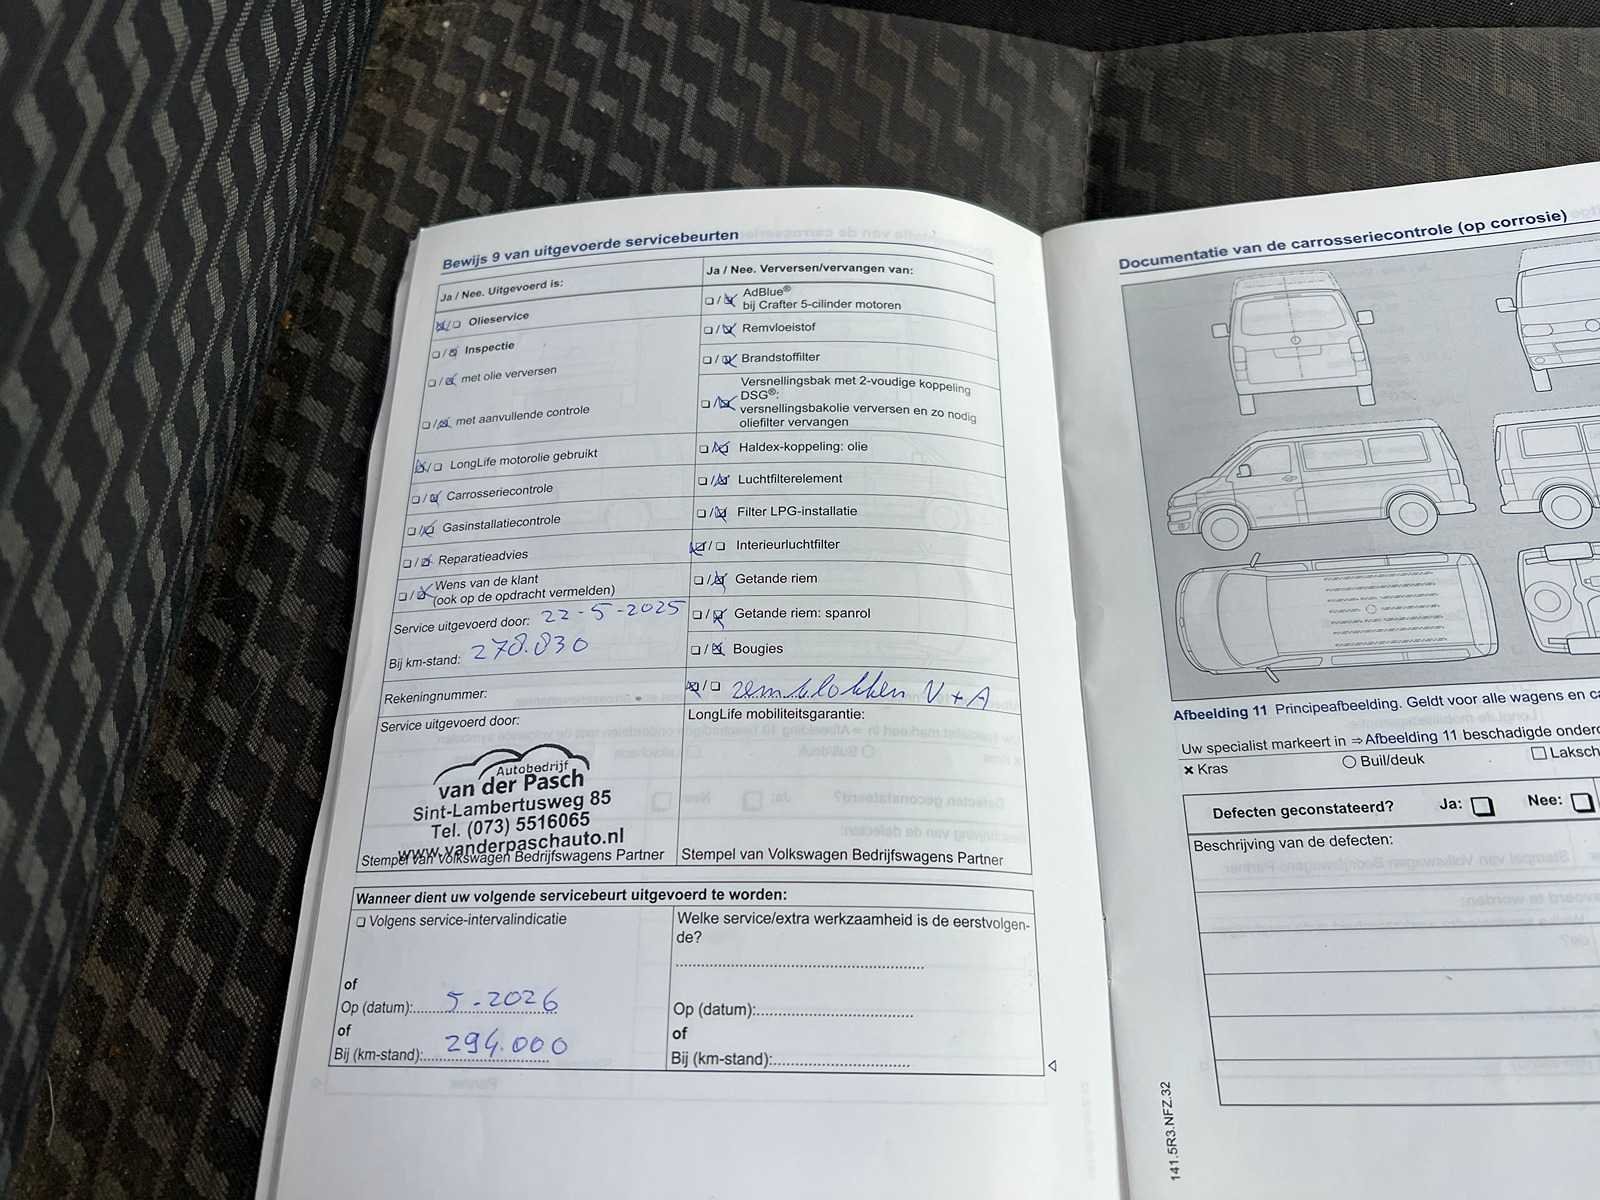 Bewijs 9 van uitgevoerde servicebeurten
Ja / Nee. Uitgevoerd is:
Olieservice
Inspectie
met olie verversen
met aanvullende controle
LongLife motorolie gebruikt
Carrosseriecontrole
Gasinstallatiecontrole
Reparatieadvies
Wens van de klant
(ook op de opdracht vermelden)
Service uitgevoerd door: 22-5-2025
Bij km-stand: 278.830
Rekeningnummer:
Service uitgevoerd door:
Autobedrijf
van der Pasch
Sint-Lambertusweg 85
Tel. (073) 5516065
www.vanderpaschauto.nl
Stempel van Volkswagen Bedrijfswagens Partner
Ja / Nee. Verversen/vervangen van:
AdBlue®
bij Crafter 5-cilinder motoren
Remvloeistof
Brandstoffilter
Versnellingsbak met 2-voudige koppeling
DSG®:
versnellingsbakolie verversen en zo nodig
oliefilter vervangen
Haldex-koppeling: olie
Luchtfilterelement
Filter LPG-installatie
Interieurluchtfilter
Getande riem
Getande riem: spanrol
Bougies
remblokken V + A
LongLife mobiliteitsgarantie:
Stempel van Volkswagen Bedrijfswagens Partner
Wanneer dient uw volgende servicebeurt uitgevoerd te worden:
Volgens service-intervalindicatie
of
Op (datum): 5-2026
of
Bij (km-stand): 294.000
Welke service/extra werkzaamheid is de eerstvolgen-
de?
Op (datum):
of
Bij (km-stand):
Documentatie van de carrosseriecontrole (op corrosie)
Afbeelding 11 Principeafbeelding. Geldt voor alle wagens en
Uw specialist markeert in ⇒ Afbeelding 11 beschadigde
Kras
Buil/deuk
Defecten geconstateerd? Ja: Nee:
Beschrijving van de defecten:
141.5R3.NFZ.32